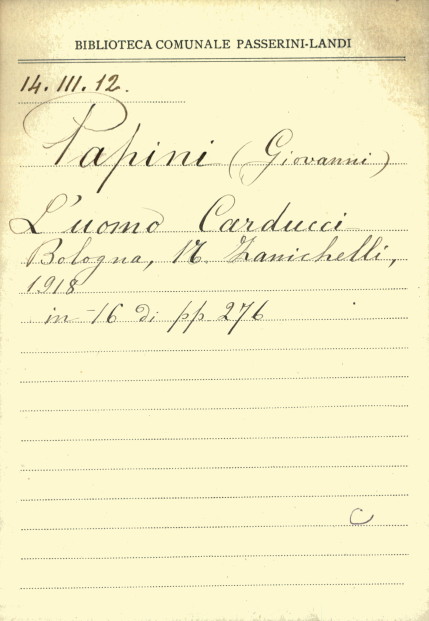 BIBLIOTECA COMUNALE PASSERINI-LANDI
14. III. 12.
Papini (Giovanni)
L'uomo Carducci
Bologna, N. Zanichelli,
1918
in-16 di pp 276
C